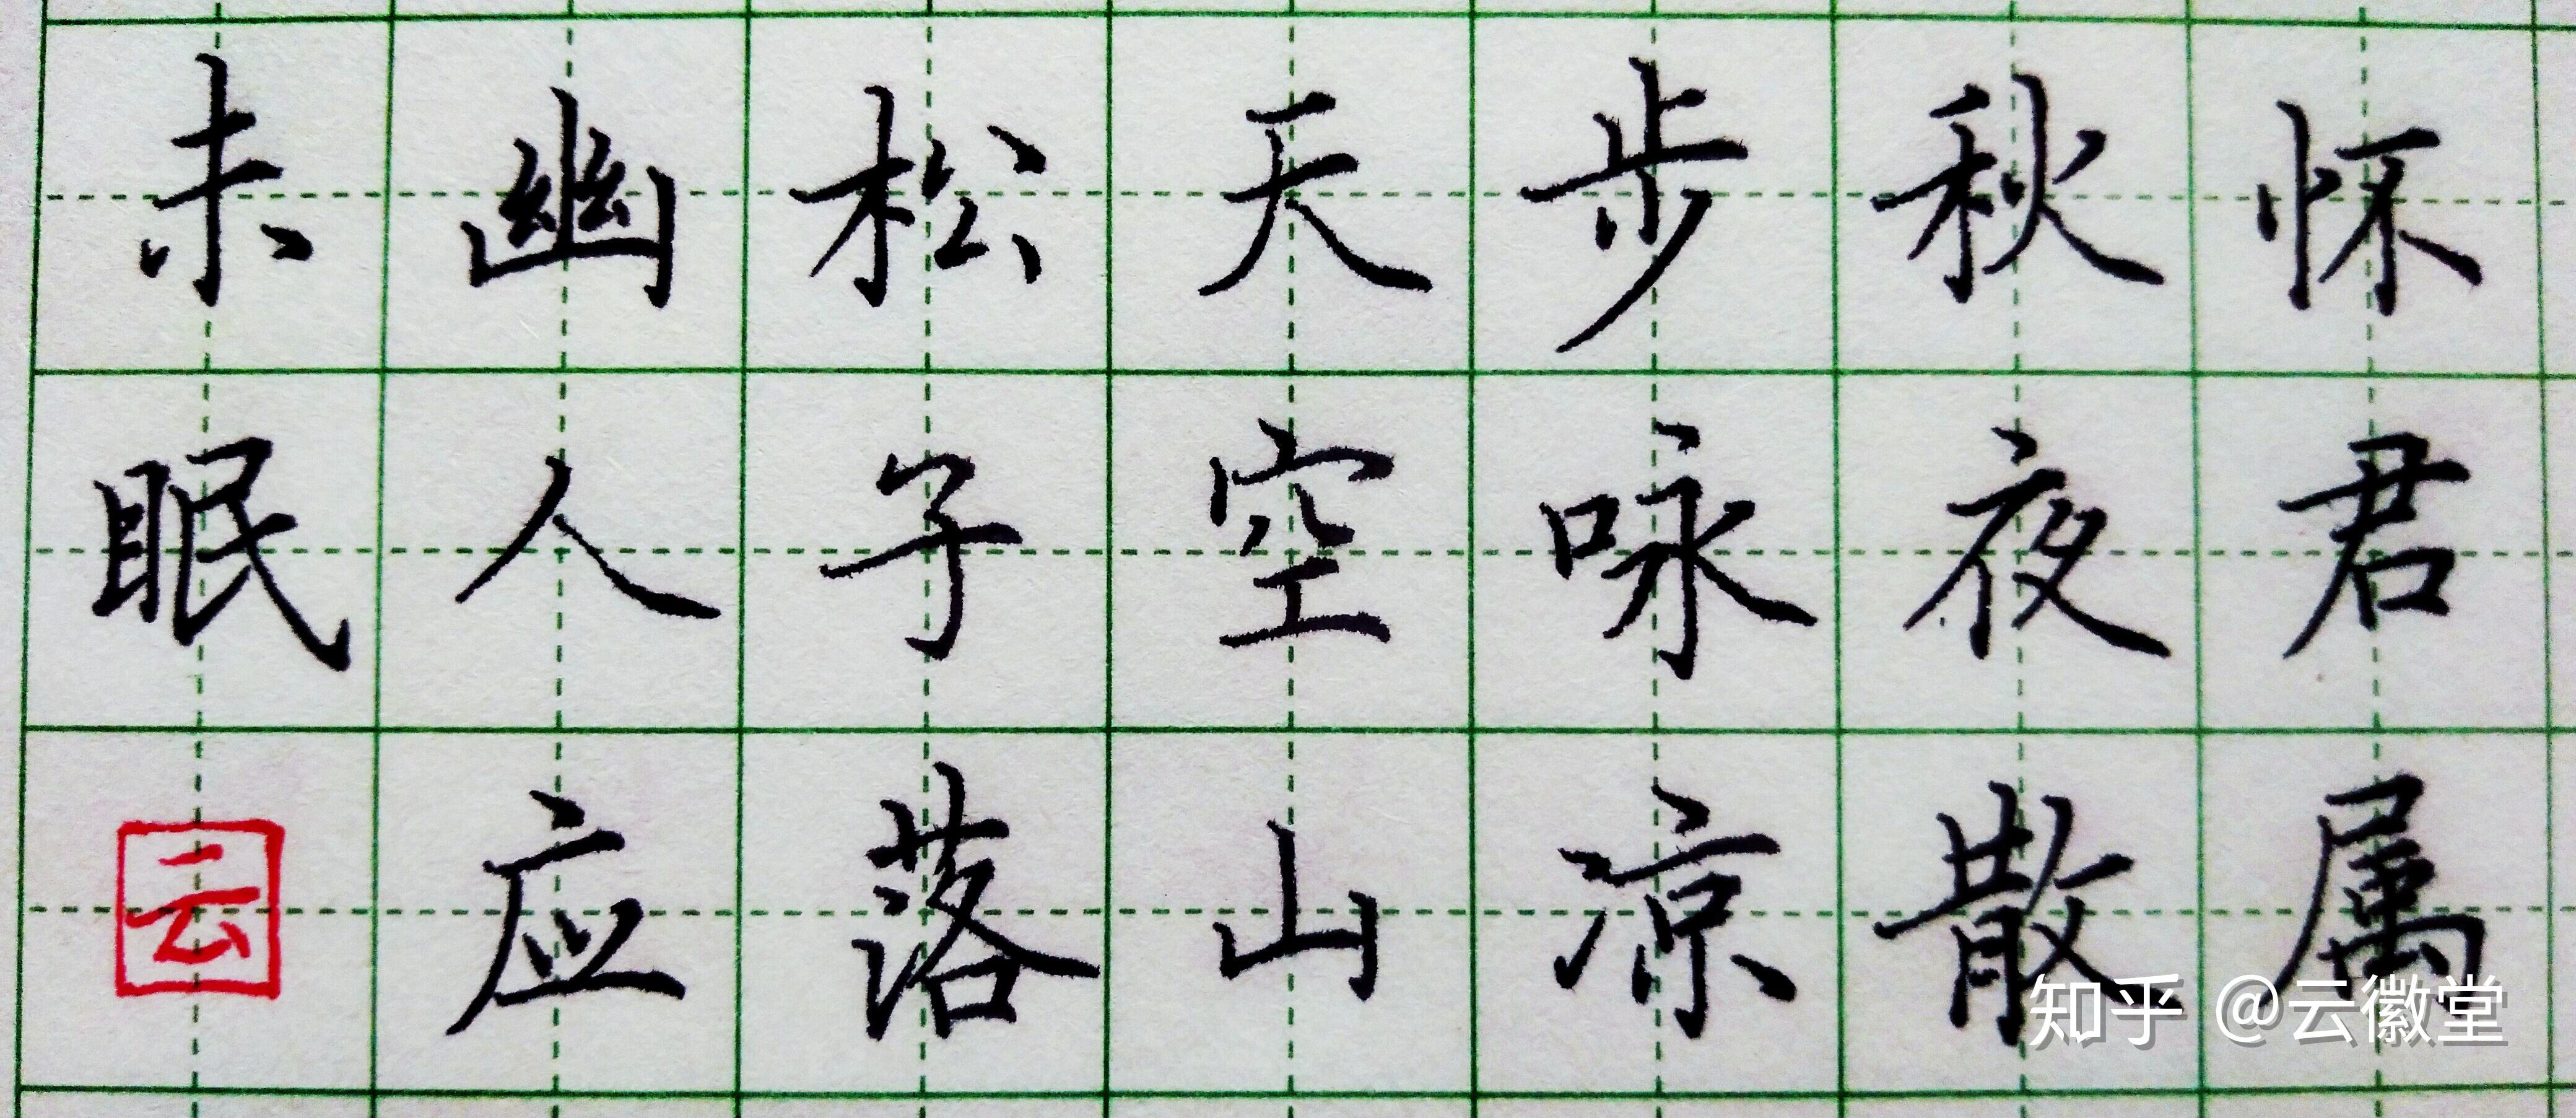 怀君属
秋夜散
步咏凉
天空山
松子落
幽人应
未眠
云
知乎 @云徽堂